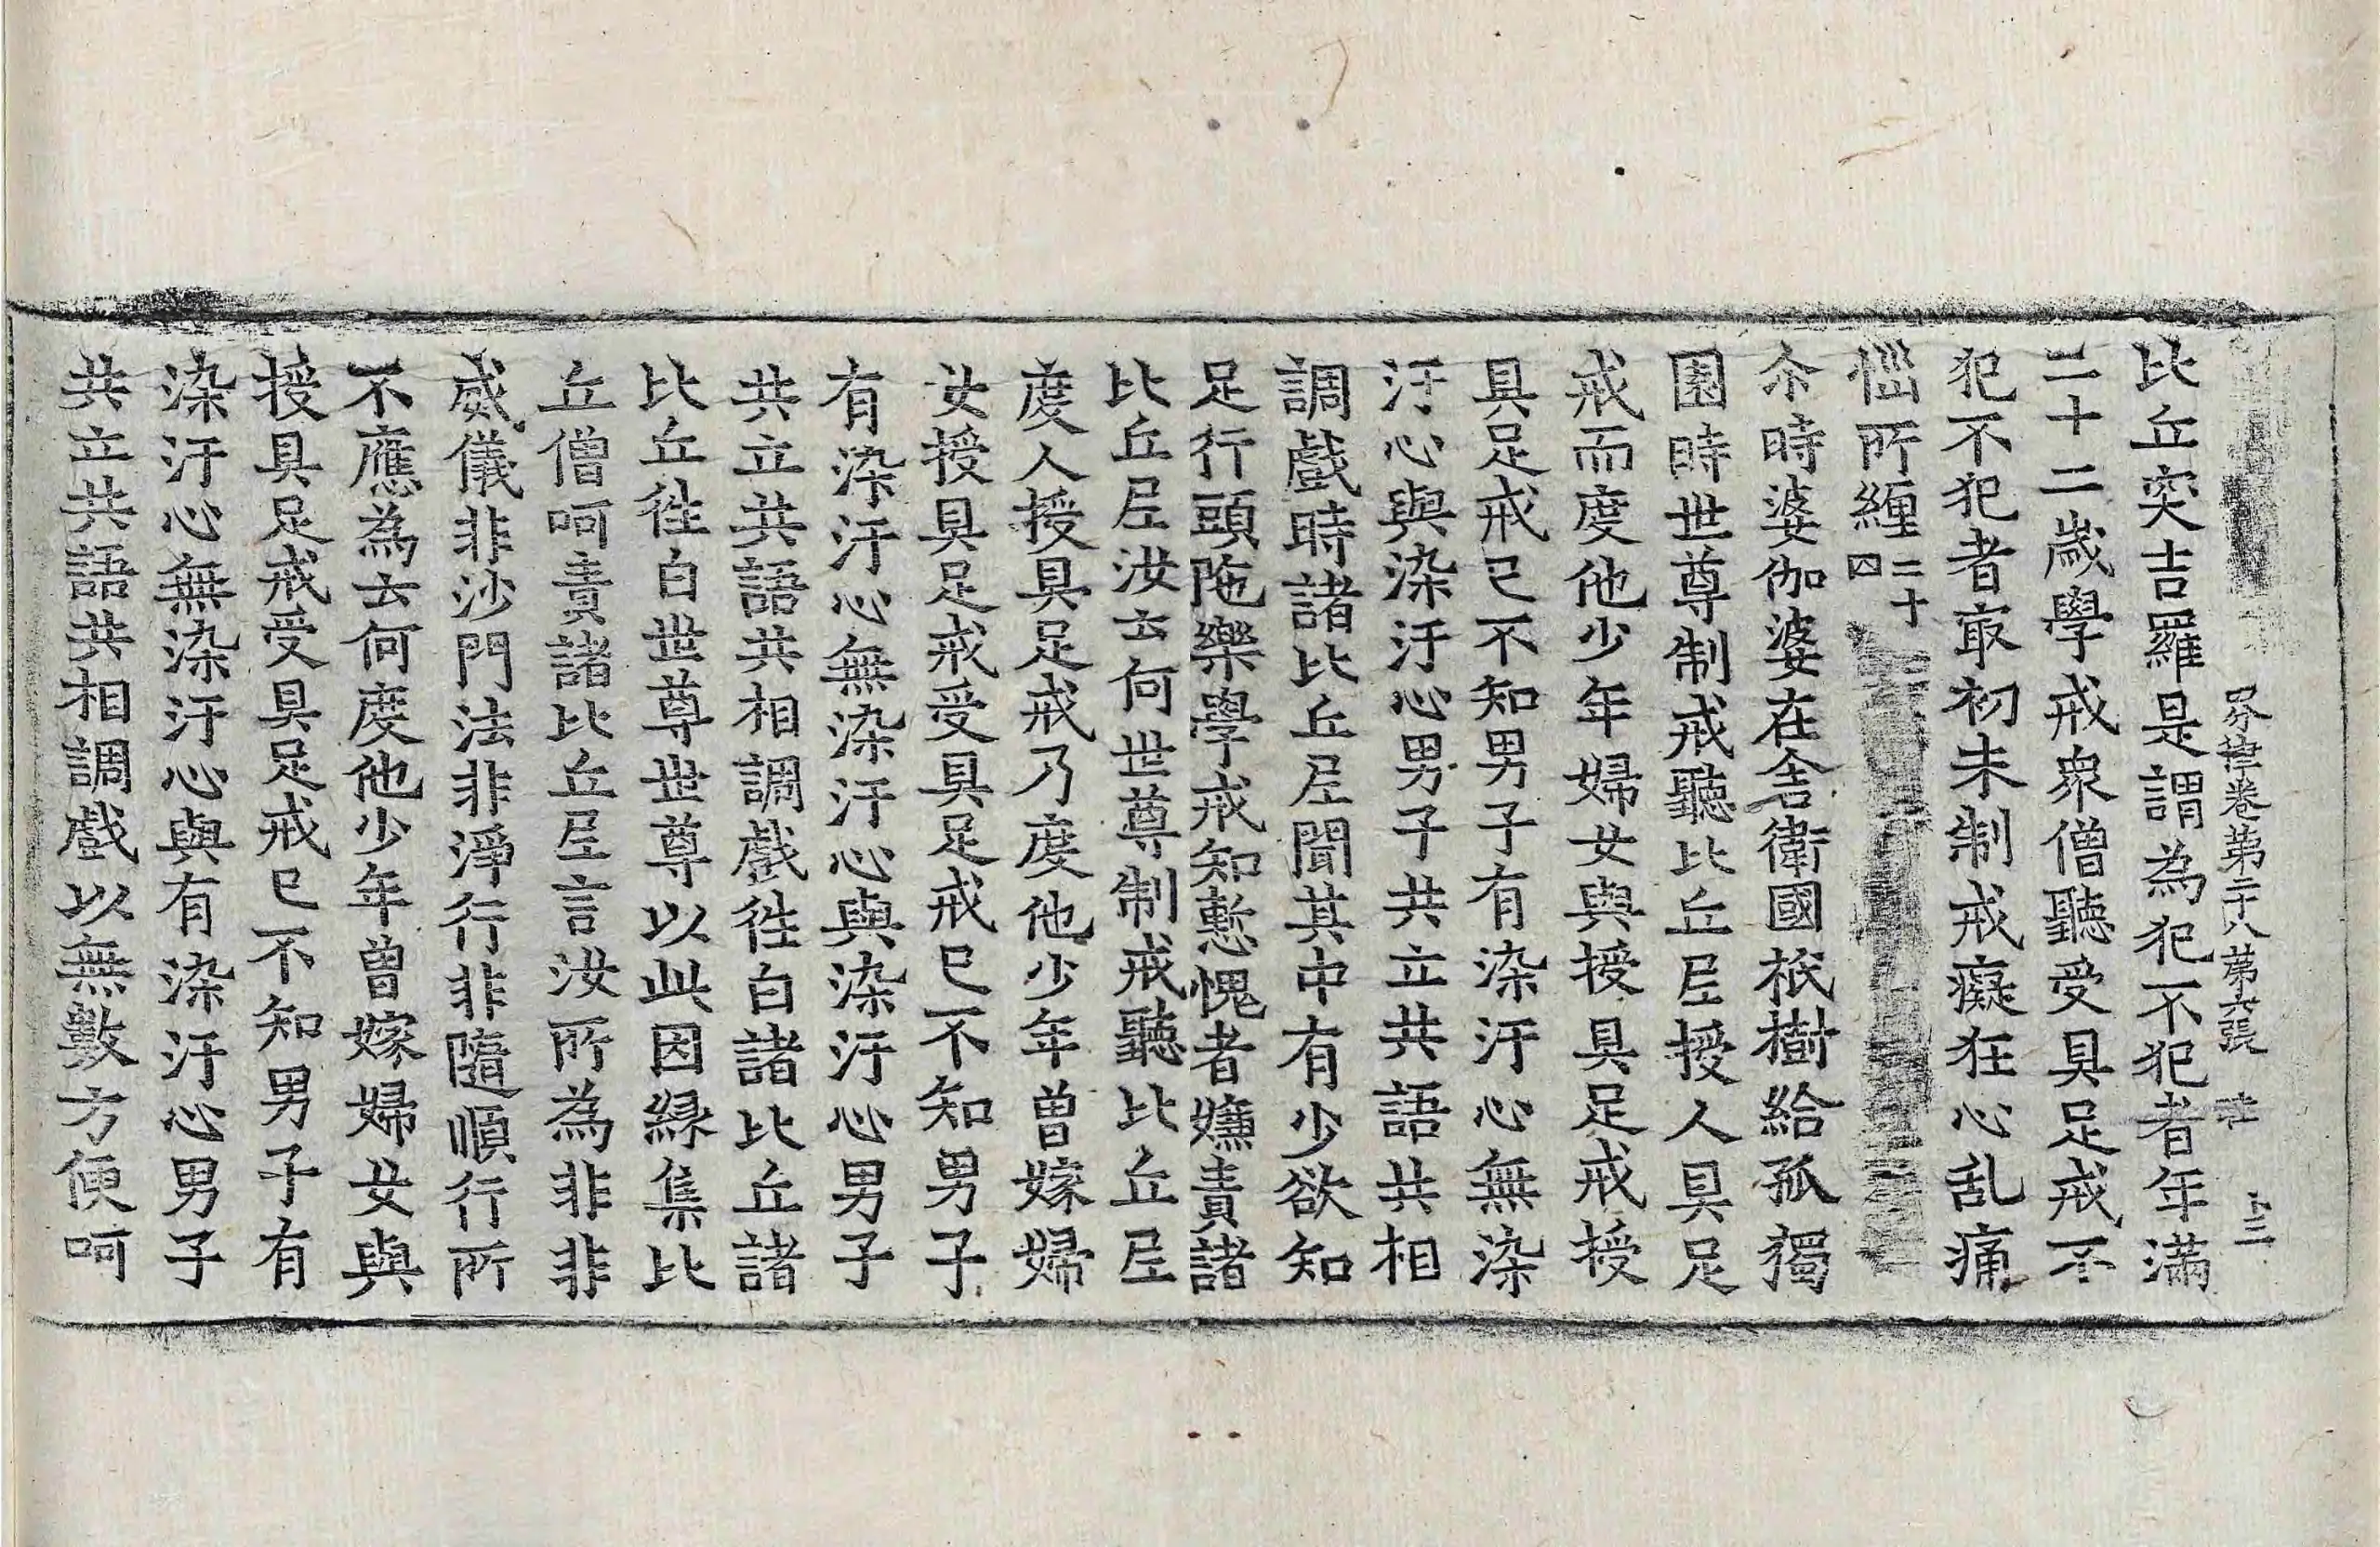 四分律卷第二十八 第六張
比丘突吉羅是謂為犯不犯者年滿
二十二歲學戒衆僧聽受具足戒不
犯不犯者㝡初未制戒癡狂心乱痛
惱所纏二十四
尒時婆伽婆在舍衛國祇樹給孤獨
園時世尊制戒聽比丘尼授人具足
戒而度他少年婦女與授具足戒授
具足戒已不知男子有染汙心無染
汙心與染汙心男子共立共語共相
調戲時諸比丘尼聞其中有少欲知
足行頭陁樂學戒知慙愧者嫌責諸
比丘尼汝云何世尊制戒聽比丘尼
度人授具足戒乃度他少年曾嫁婦
女授具足戒受具足戒已不知男子
有染汙心無染汙心與染汙心男子
共立共語共相調戲徃白諸比丘諸
比丘徃白世尊世尊以此因緣集比
丘僧呵責諸比丘尼言汝所為非非
威儀非沙門法非淨行非隨順行所
不應為云何度他少年曾嫁婦女與
授具足戒受具足戒已不知男子有
染汙心無染汙心與有染汙心男子
共立共語共相調戲以無數方便呵